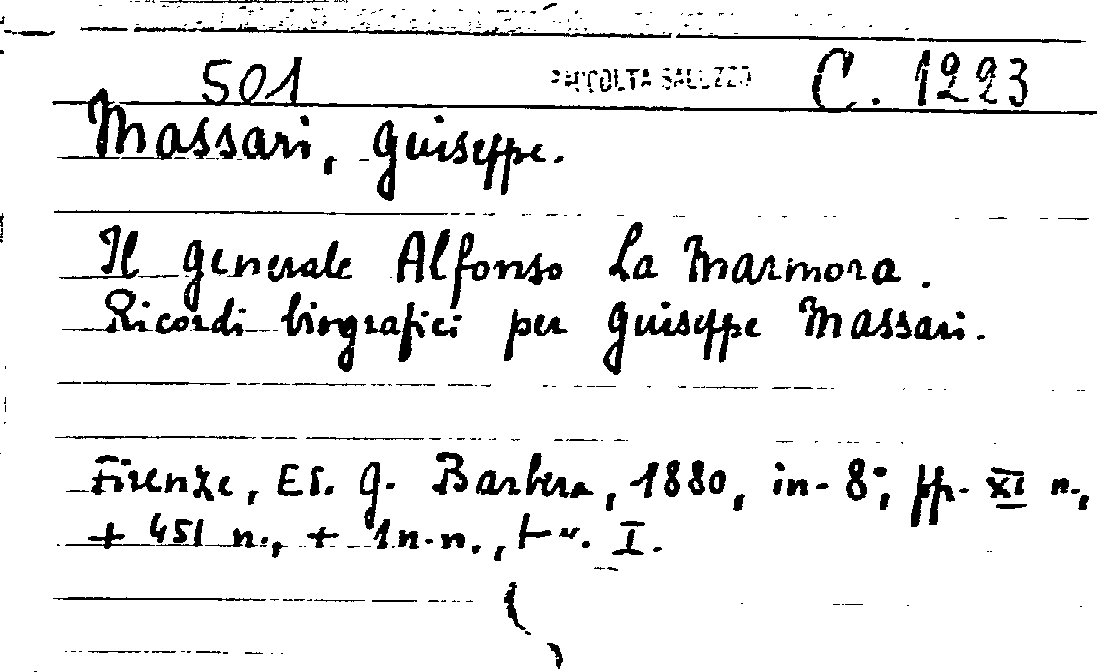 501 RACCOLTA SALUZZO C. 1223
Massari, Giuseppe.
Il generale Alfonso La Marmora.
Ricordi biografici per Giuseppe Massari.
Firenze, Ed. G. Barbera, 1880, in-8°, pp. XI n.,
+ 451 n., + 1 n.n., tav. I.